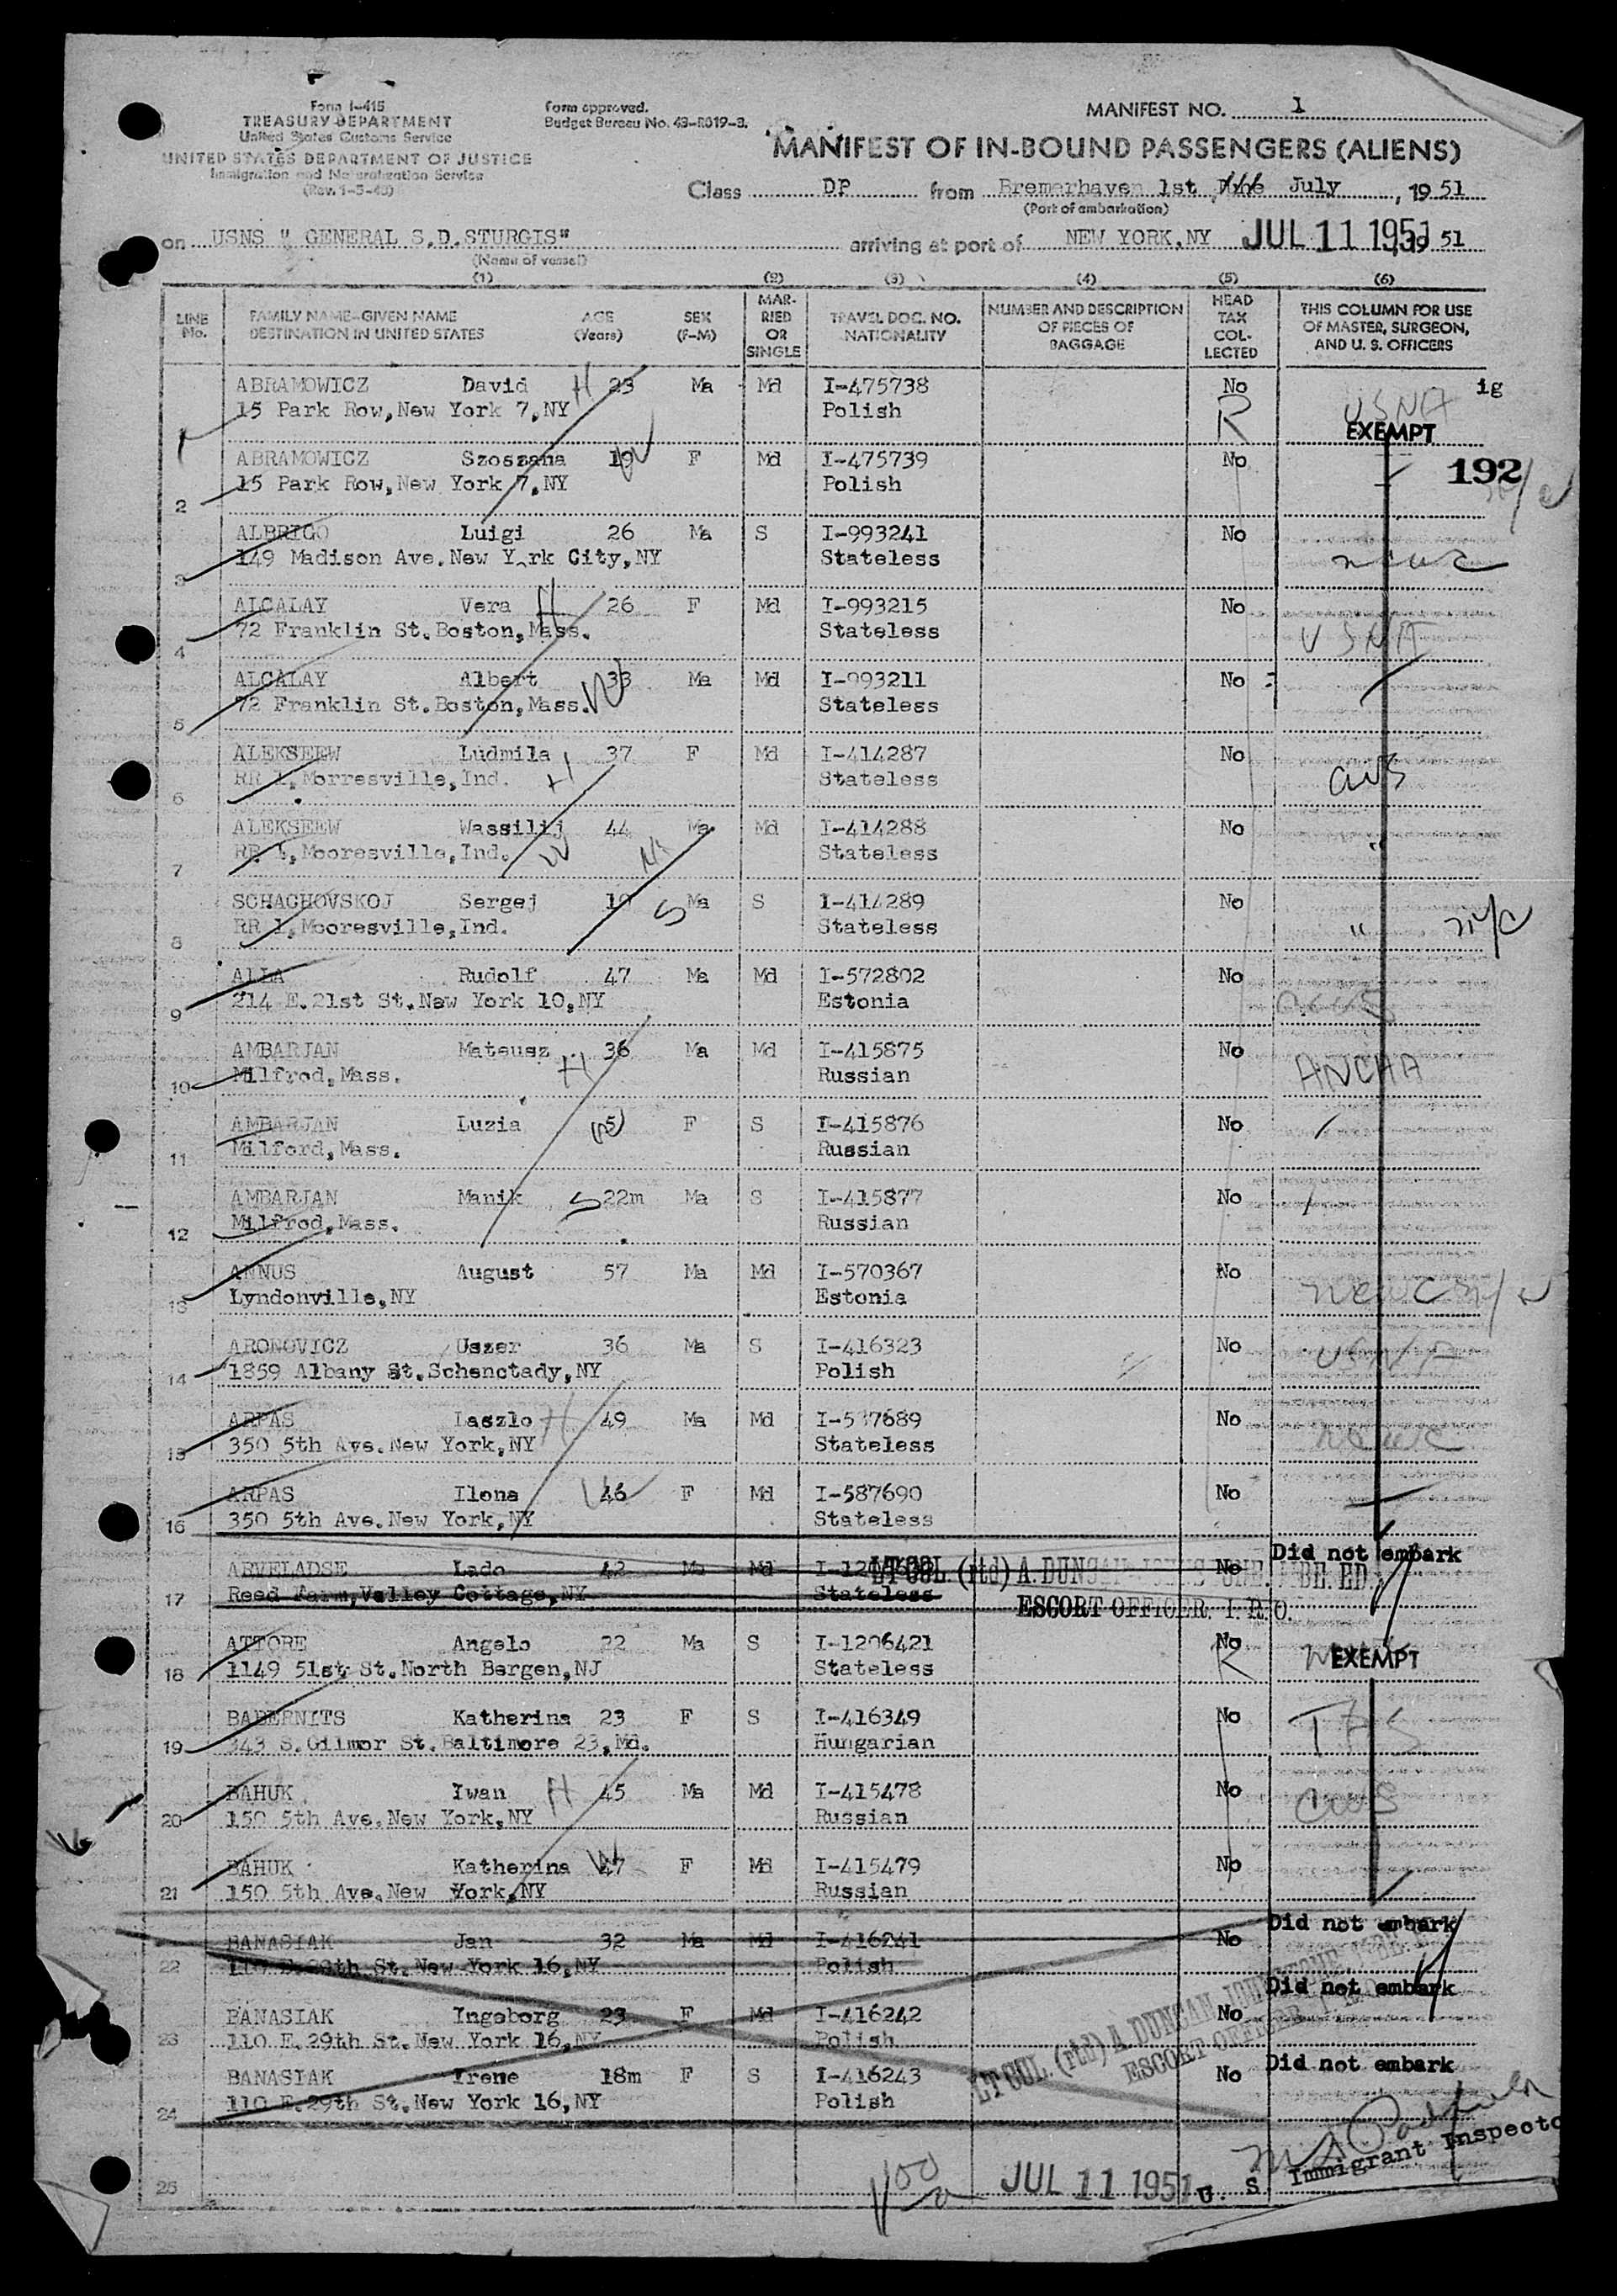 Form I-415
TREASURY DEPARTMENT
United States Customs Service
UNITED STATES DEPARTMENT OF JUSTICE
Immigration and Naturalization Service
Form approved.
Budget Bureau No. 43-R019-3.
MANIFEST NO. 1
MANIFEST OF IN-BOUND PASSENGERS (ALIENS)
Class DP from Bremerhaven 1st July, 1951
(Port of embarkation)
on USNS " GENERAL S.D.STURGIS" arriving at port of NEW YORK,NY JUL 11 1951 51
(Name of vessel)
(1) (2) (3) (4) (5) (6)
LINE No. FAMILY NAME-GIVEN NAME DESTINATION IN UNITED STATES AGE (Years) SEX (F-M) MARRIED OR SINGLE TRAVEL DOC. NO. NATIONALITY NUMBER AND DESCRIPTION OF PIECES OF BAGGAGE HEAD TAX COLLECTED THIS COLUMN FOR USE OF MASTER, SURGEON, AND U. S. OFFICERS
ABRAMOWICZ David H 23 Ma Md I-475738 No ig
1 15 Park Row,New York 7,NY Polish R USNA
EXEMPT
ABRAMOWICZ Szoszana 19 W F Md I-475739 No 192
2 15 Park Row,New York 7,NY Polish
ALBRIGO Luigi 26 Ma S I-993241 No
3 149 Madison Ave.New York City,NY Stateless ncwc
ALCALAY Vera H 26 F Md I-993215 No
4 72 Franklin St.Boston,Mass. Stateless USNA
ALCALAY Albert 33 Ma Md I-993211 No
5 72 Franklin St.Boston,Mass. W Stateless
ALEKSEEW Ludmila 37 F Md I-414287 No
6 RR 1,Morresville,Ind. H Stateless CWS
ALEKSEEW Wassilij 44 Ma Md I-414288 No
7 RR 1,Mooresville,Ind. W Stateless "
SCHACHOVSKOJ Sergej 19 S Ma S I-414289 No
8 RR 1,Mooresville,Ind. Stateless "
ALLA Rudolf 47 Ma Md I-572802 No
9 214 E.21st St.New York 10,NY Estonia
AMBARJAN Mateusz 36 Ma Md I-415875 No
10 Milfrod,Mass. H Russian ANCHA
AMBARJAN Luzia 5 F S I-415876 No
11 Milford,Mass. Russian
AMBARJAN Manik S 22m Ma S I-415877 No
12 Milfrod,Mass. Russian
ANNUS August 57 Ma Md I-570367 No
13 Lyndonville,NY Estonia
ARONOVICZ Uszer 36 Ma S I-416323 No
14 1859 Albany St.Schenctady,NY Polish USNA
ARPAS Laszlo H 49 Ma Md I-587689 No
15 350 5th Ave.New York,NY Stateless ncwc
ARPAS Ilona W 46 F Md I-587690 No
16 350 5th Ave.New York,NY Stateless
Did not embark
ARVELADSE Lado 42 Ma Md No
LT COL (rtd) A. DUNCAN
17 Reed Farm,Valley Cottage,NY Stateless
ESCORT OFFICER. I. R. O.
ATTORE Angelo 22 Ma S I-1206421 No
18 1149 51st St.North Bergen,NJ Stateless R EXEMPT
BABERNITS Katherina 23 F S I-416349 No
19 343 S.Gilmor St.Baltimore 23,Md. Hungarian
BAHUK Iwan H 45 Ma Md I-415478 No
20 150 5th Ave.New York,NY Russian CWS
BAHUK Katherina 47 W F Md I-415479 No
21 150 5th Ave.New York,NY Russian
Did not embark
BANASIAK Jan 32 Ma Md I-416241 No
22 110 E.29th St.New York 16,NY Polish
Did not embark
BANASIAK Ingeborg 23 F Md I-416242 No
23 110 E.29th St.New York 16,NY Polish
LT COL. (rtd) A. DUNCAN
ESCORT OFFICER
Did not embark
BANASIAK Irene 18m F S I-416243 No
24 110 E.29th St.New York 16,NY Polish
25 JUL 11 1951 U. S. Immigrant Inspecto